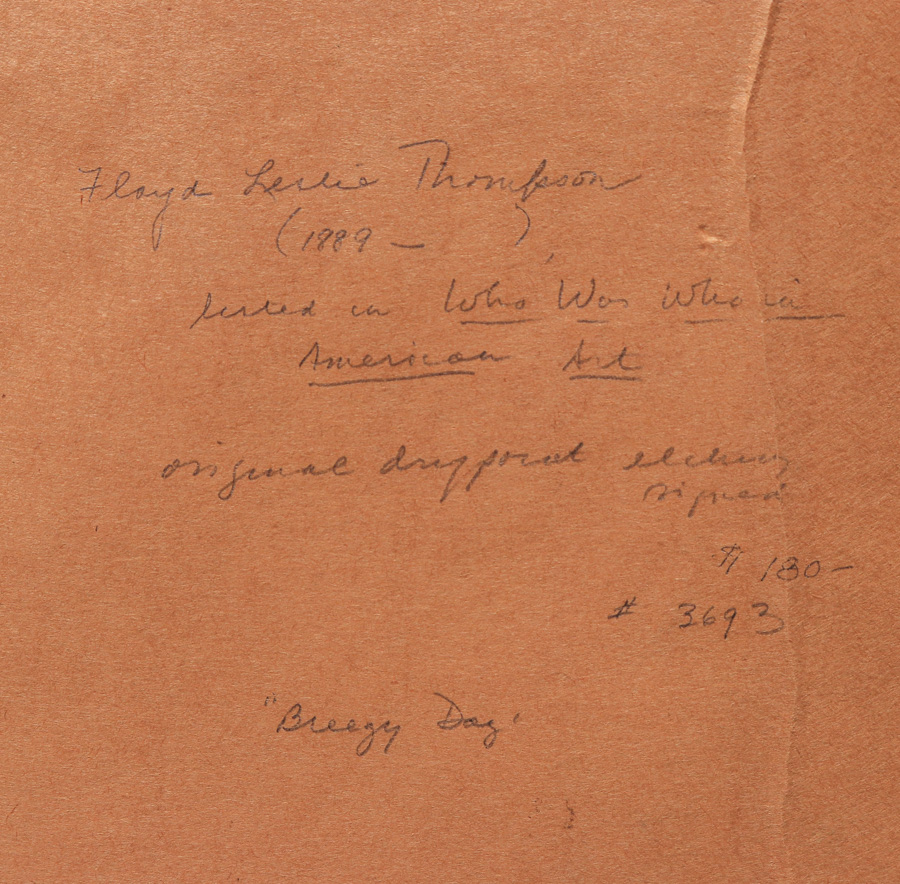 Floyd Leslie Thompson
(1889 – )
listed in Who Was Who in
American Art
original drypoint etching
signed
180–
# 3693
"Breezy Day"